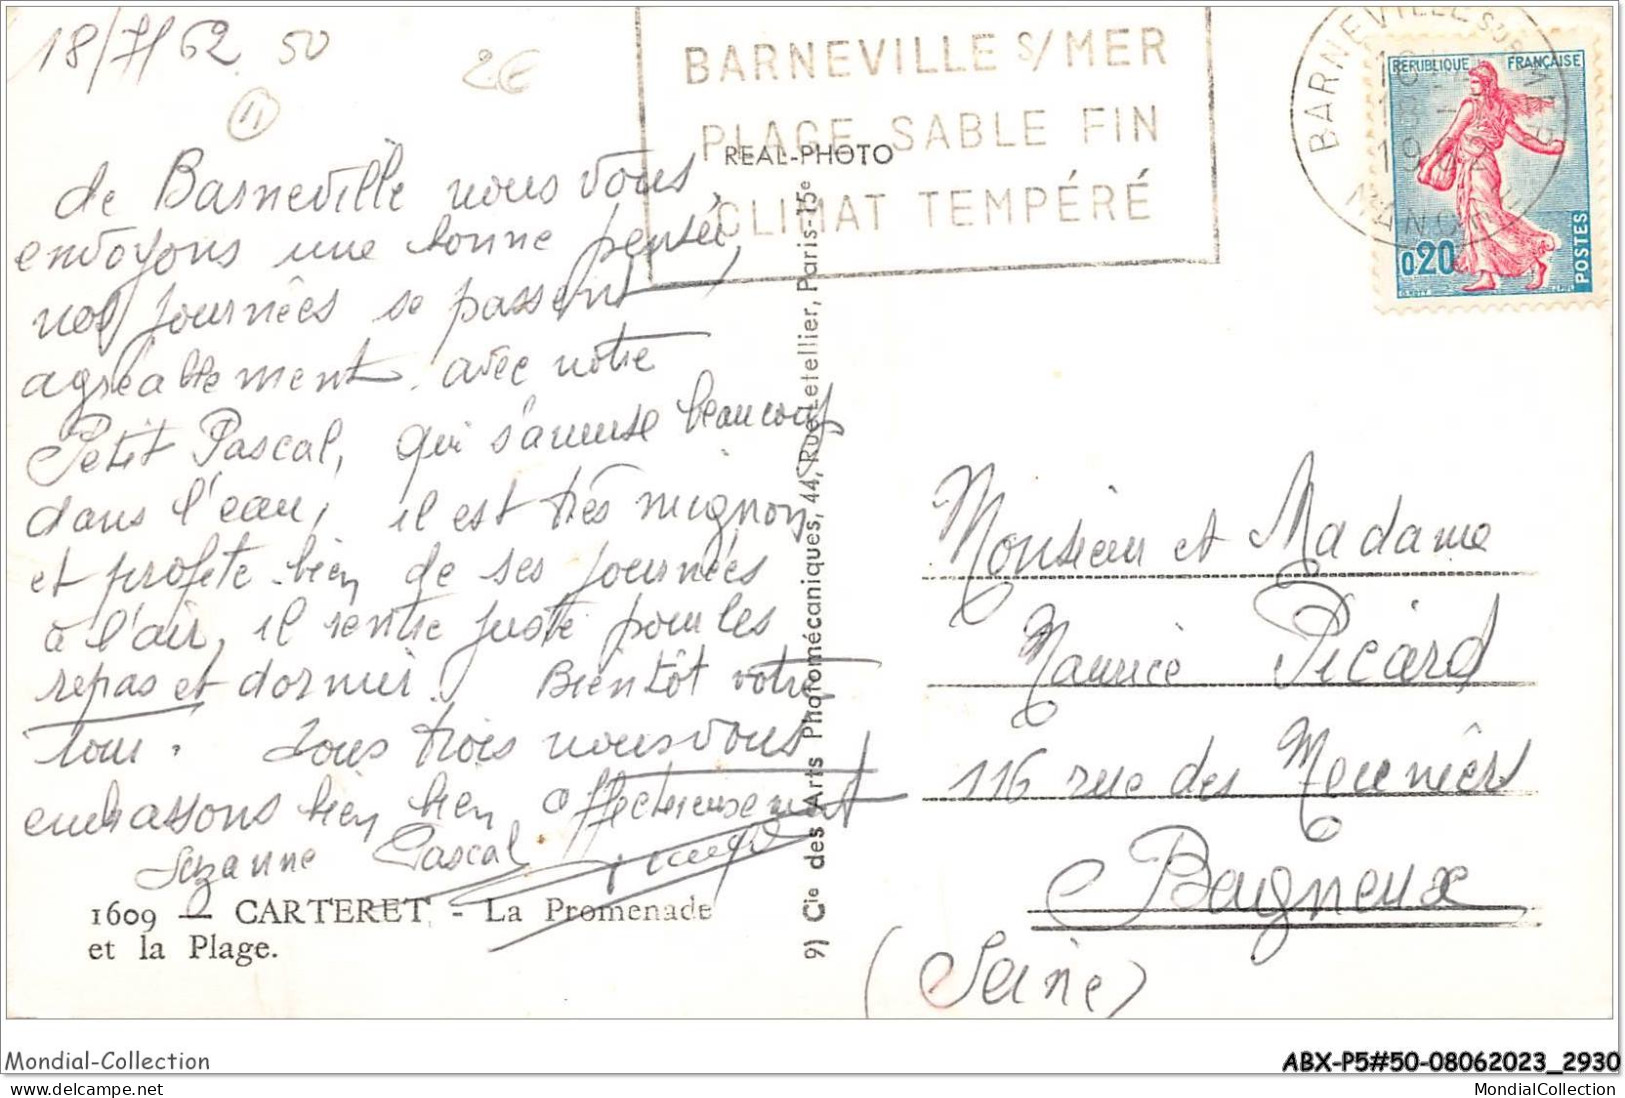 18/7/62 50
2€
11
BARNEVILLE S/MER
PLAGE SABLE FIN
CLIMAT TEMPÉRÉ
BARNEVILLE SUR MER
18 -
1962
MANCHE
REPUBLIQUE FRANÇAISE
0,20
POSTES
REAL-PHOTO
de Barneville nous vous
envoyons une bonne pensée,
nos journées se passent
agréablement avec notre
Petit Pascal, qui s'amuse beaucoup
dans l'eau, il est très mignon
et profite bien de ses journées
à l'air, il rentre juste pour les
repas et dormir. Bientôt votre
tour. Tous trois nous vous
embrassons bien bien affectueusement
Suzanne Pascal
1609 — CARTERET - La Promenade
et la Plage.
9) Cie des Arts Photomécaniques, 44, Rue Letellier, Paris-15e
Monsieur et Madame
Maurice Picard
116 rue des Meuniers
Bagneux
(Seine)
Mondial-Collection
ABX-P5#50-08062023_2930
www.delcampe.net
MondialCollection